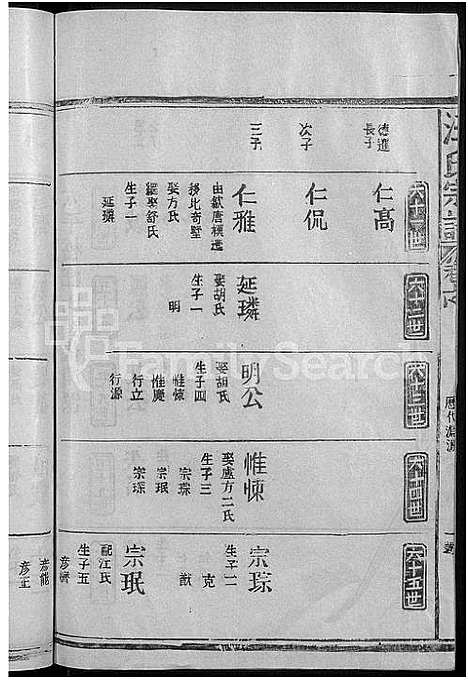 汪氏宗譜
歷代淵源
六十一世
德進
長子
仁高
次子
仁侃
三子
仁雅
由歙唐模遷
移北奇墅
娶方氏
繼娶舒氏
生子一
延璘
六十二世
延璘
娶胡氏
生子一
明
六十三世
明公
娶胡氏
生子四
惟悚
惟慶
行立
行源
六十四世
惟悚
娶盧方二氏
生子三
宗琮
宗珉
宗琛
六十五世
宗琮
生子二
克
猷
宗珉
配江氏
生子五
彦能
彦正
FamilySearch